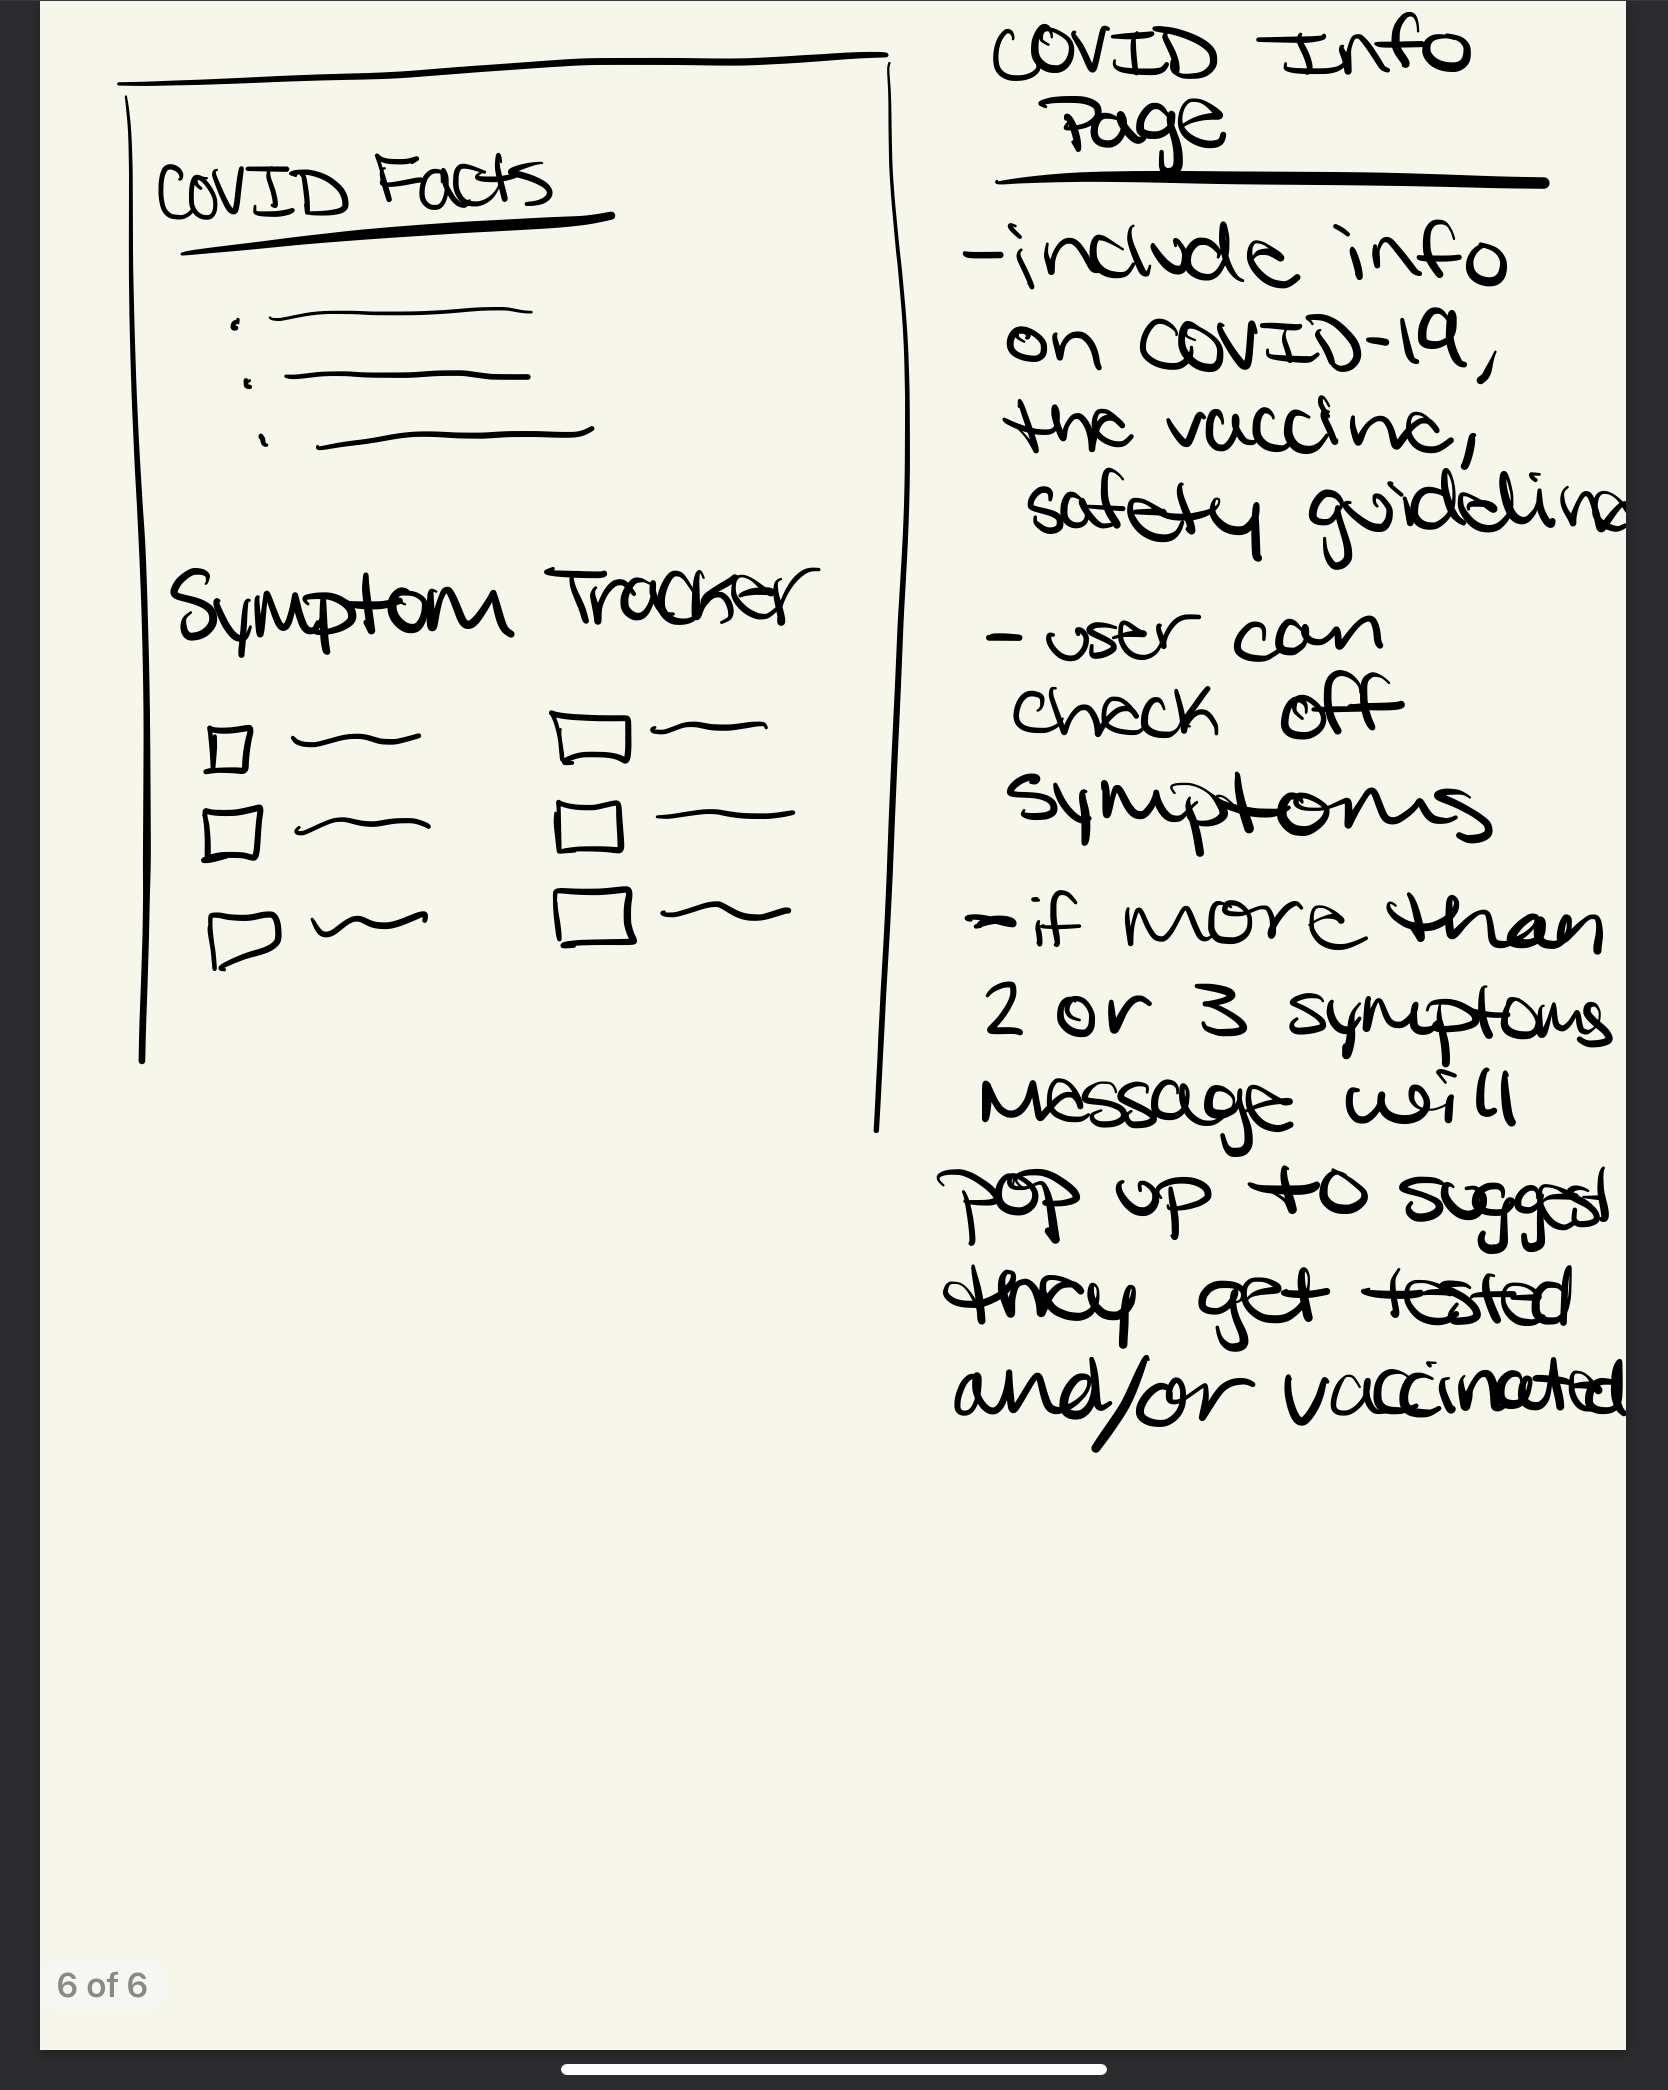 COVID Facts
Symptom Tracker
COVID Info
Page
- include info
on COVID-19,
the vaccine,
safety guideline
- user can
check off
symptoms
- if more than
2 or 3 symptoms
message will
pop up to suggest
they get tested
and/or vaccinated
6 of 6